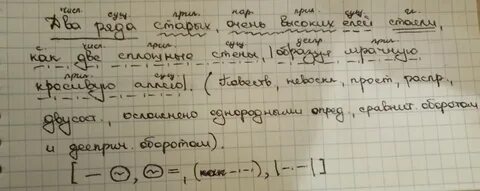 числ. сущ. прил. нар. прил. сущ. гл.
Два ряда старых, очень высоких елей стояли,
с. числ. прил. сущ. деепр. прил.
как две сплошные стены, |образуя мрачную
прил. сущ.
красивую аллею|. (Повеств, невоскл, прост, распр.,
двусост., осложнено однородными опред, сравнит. оборотом
и дееприч. оборотом).
[ — ~ , ~ = , ( -·-·), |-·-·| ]